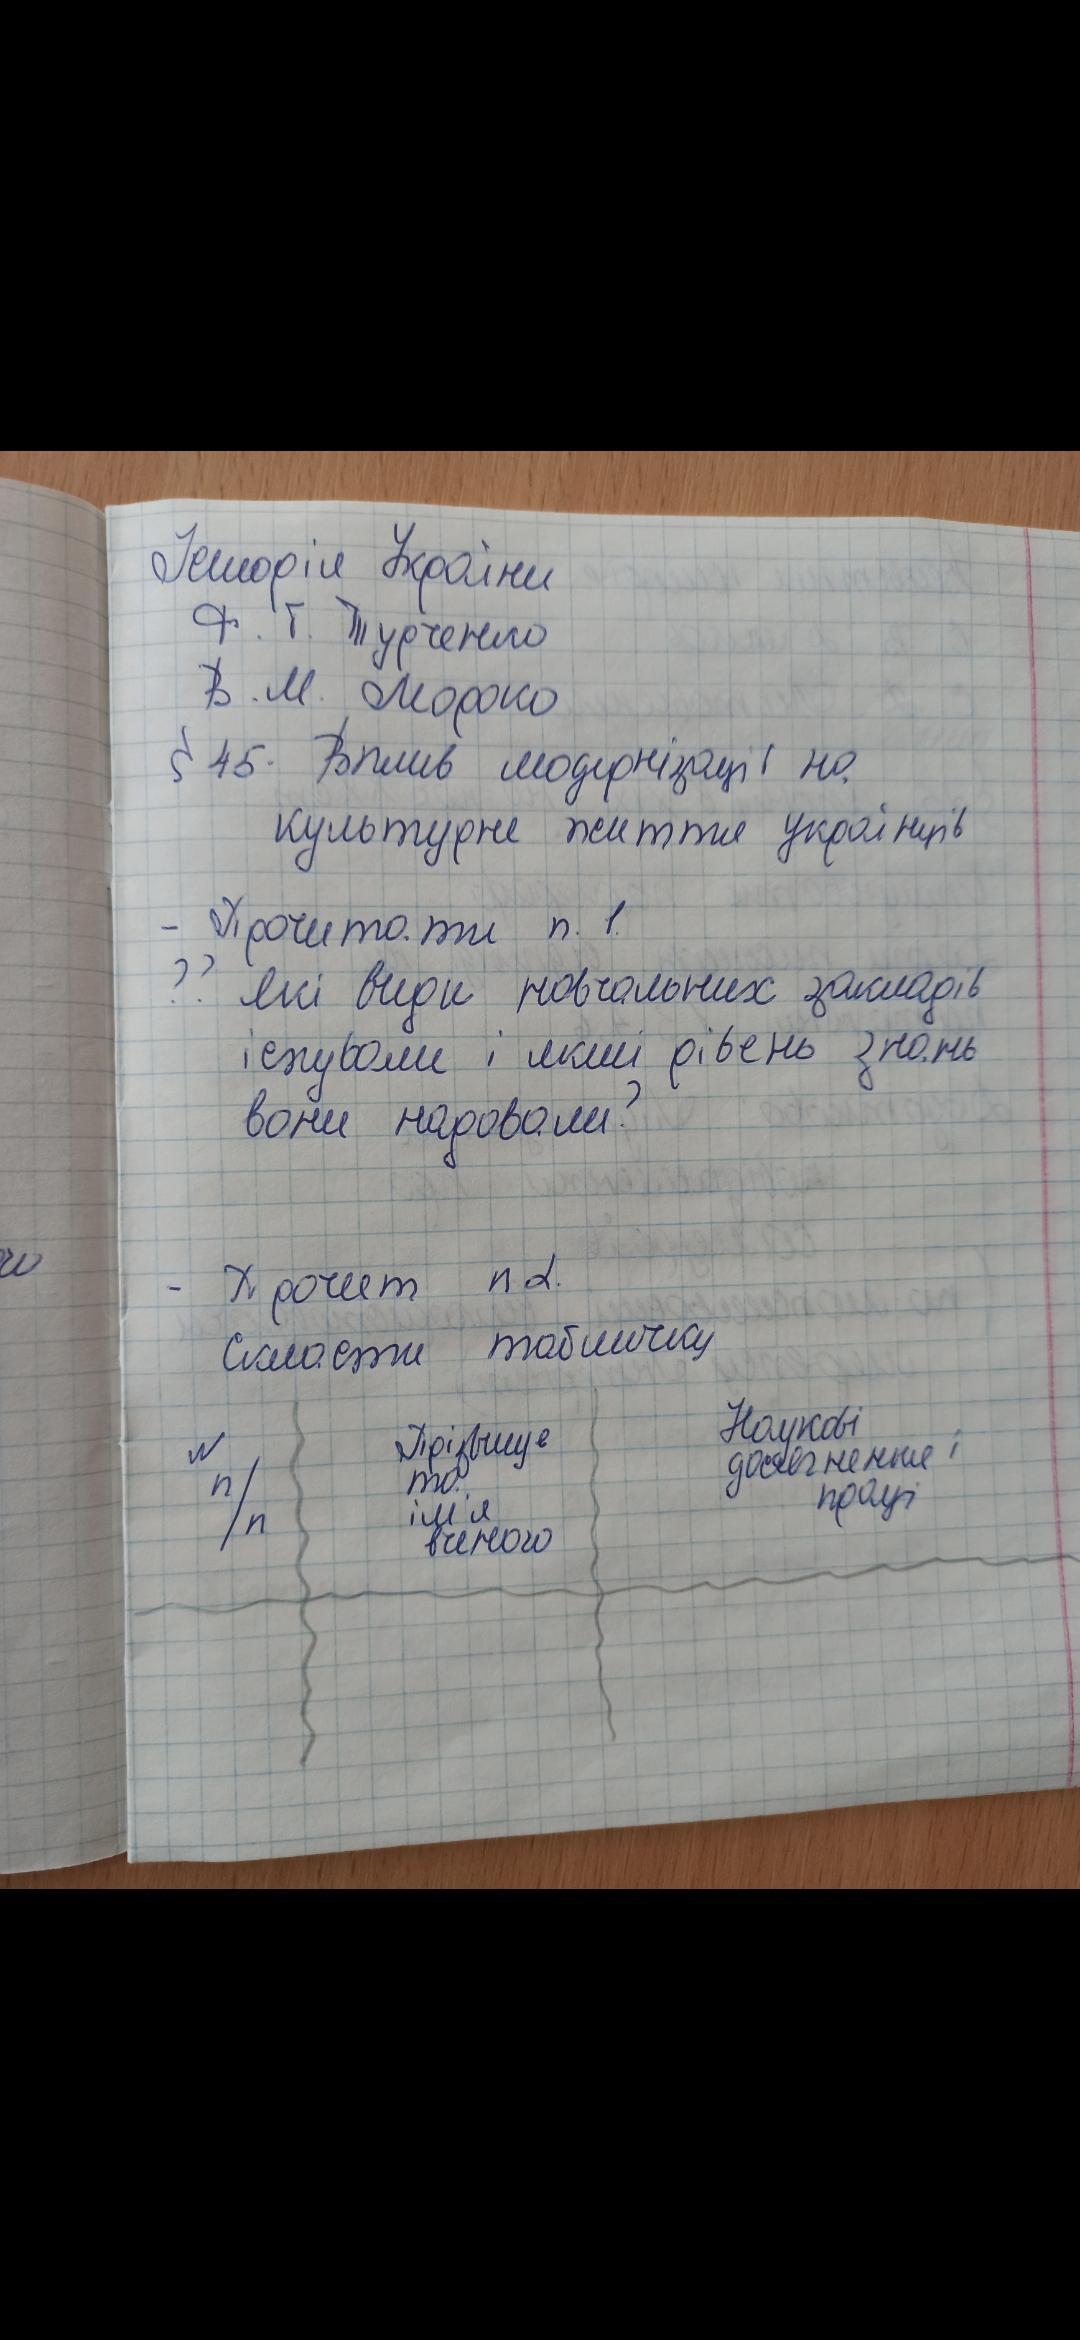 Історія України
Ф. Г. Турченко
В. М. Мороко
§ 45. Вплив модернізації на
культурне життя українців
- Прочитати п. 1.
?? Які види навчальних закладів
існували і який рівень знань
вони надавали?
- Прочит п 2.
Скласти табличку
N
п/п
Прізвище
та
ім'я
вченого
Наукові
досягнення і
праці